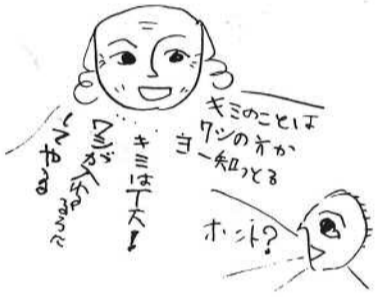 キミのことは
ワシの方が
ヨー知っとる
キミはT大!
ワシが入れるように
してやる
ホント?